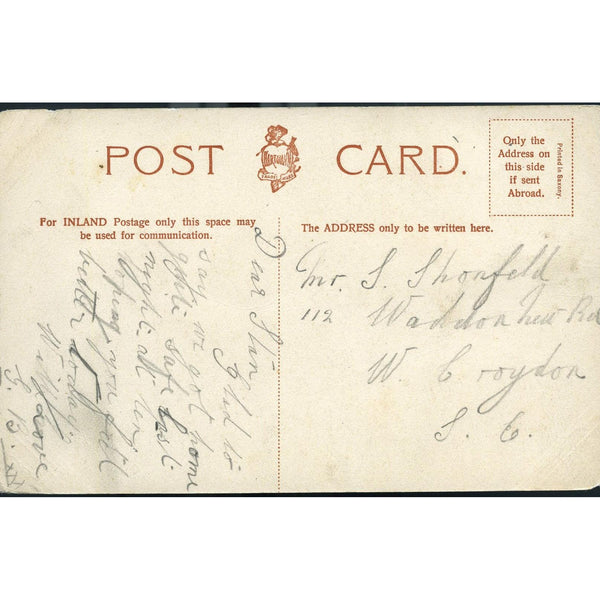 POST CARD.
Only the
Address on
this side
if sent
Abroad.
Printed in Saxony.
For INLAND Postage only this space may
be used for communication.
The ADDRESS only to be written here.
Dear
Glad to
say we got home
quite safe last
night all
hoping you feel
better today.
With love
Mr. S. Shonfeld
112 Waddon New Rd
W. Croydon
S. E.